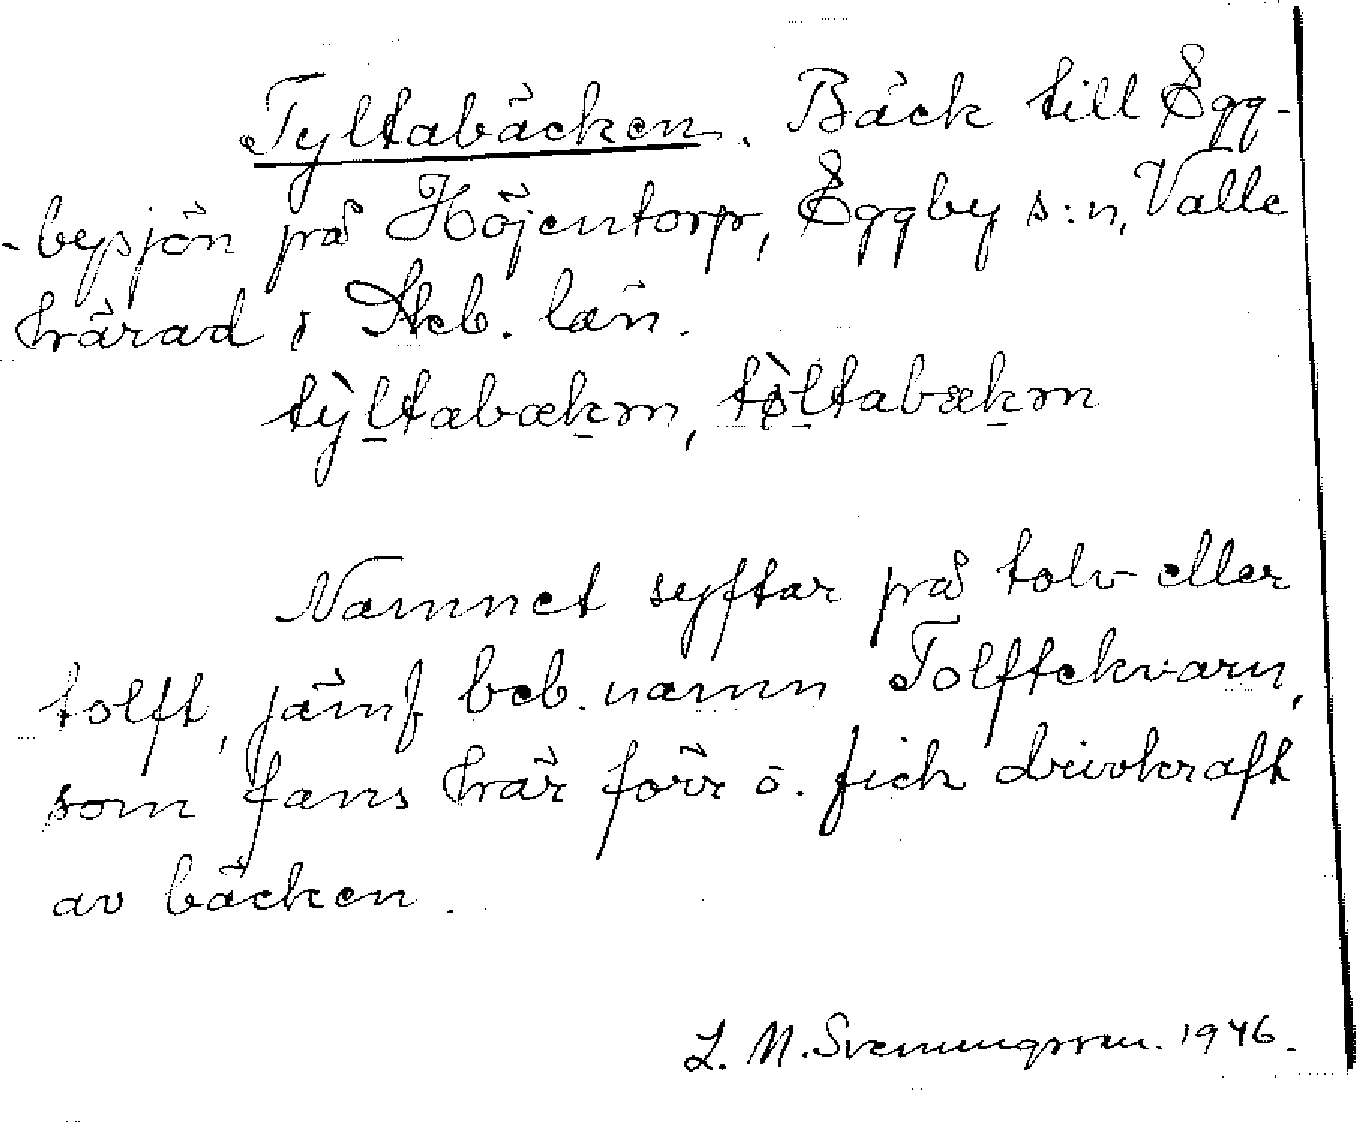 Tyltabäcken. Bäck till Egg-
-bysjön på Höjentorp, Eggby s:n, Valle
härad i Skb. län.
tỳḻtabækm, tø̀ḻtabækm
Namnet syftar på tolv eller
tolft, jämf beb. namn Tolftekvarn,
som fans här förr o. fick drivkraft
av bäcken.
L. M. Svenungsson. 1946.